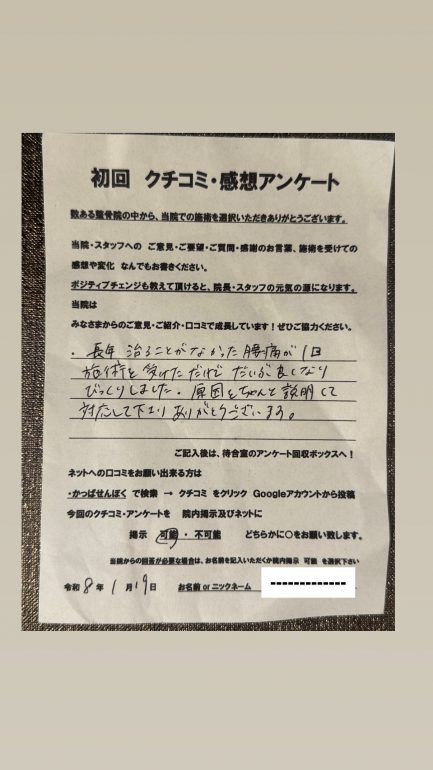 初回 クチコミ・感想アンケート
数ある整骨院の中から、当院での施術を選択いただきありがとうございます。
当院・スタッフへの ご意見・ご要望・ご質問・感謝のお言葉、施術を受けての
感想や変化 なんでもお書きください。
ポジティブチェンジも教えて頂けると、院長・スタッフの元気の源になります。
当院は
みなさまからのご意見・ご紹介・口コミで成長しています！ぜひご協力ください。
・長年 治ることがなかった腰痛が1回
施術を受けただけで だいぶ良くなり
びっくりしました。原因をちゃんと説明して
対応して下さり ありがとうございます。
ご記入後は、待合室のアンケート回収ボックスへ！
ネットへの口コミをお願い出来る方は
・かっぱせんぼく で検索 → クチコミ をクリック Googleアカウントから投稿
今回のクチコミ・アンケートを 院内掲示及びネットに
掲示 可能 ・ 不可能 どちらかに○をお願い致します。
当院からの回答が必要な場合は、お名前を記入いただくか院内掲示 可能 を選択下さい
令和 8 年 1 月 19 日 お名前 or ニックネーム -------------